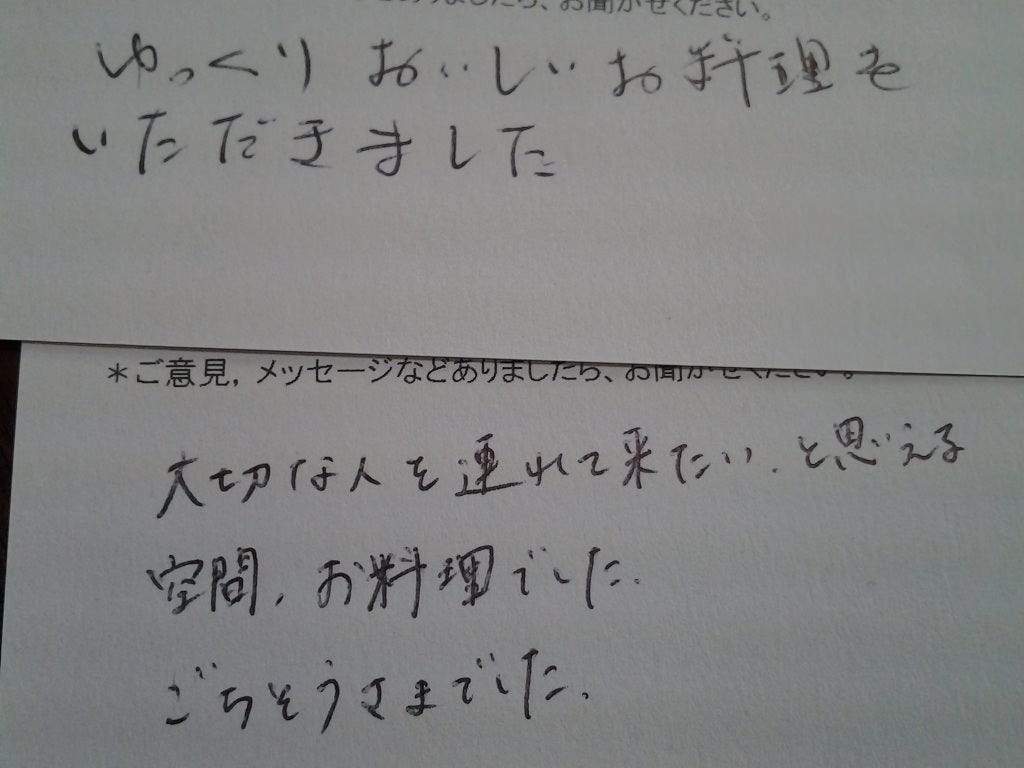 ありましたら、お聞かせください。
ゆっくり おいしいお料理を
いただきました
＊ご意見，メッセージなどありましたら、お聞かせください。
大切な人を連れて来たい、と思える
空間、お料理でした。
ごちそうさまでした。